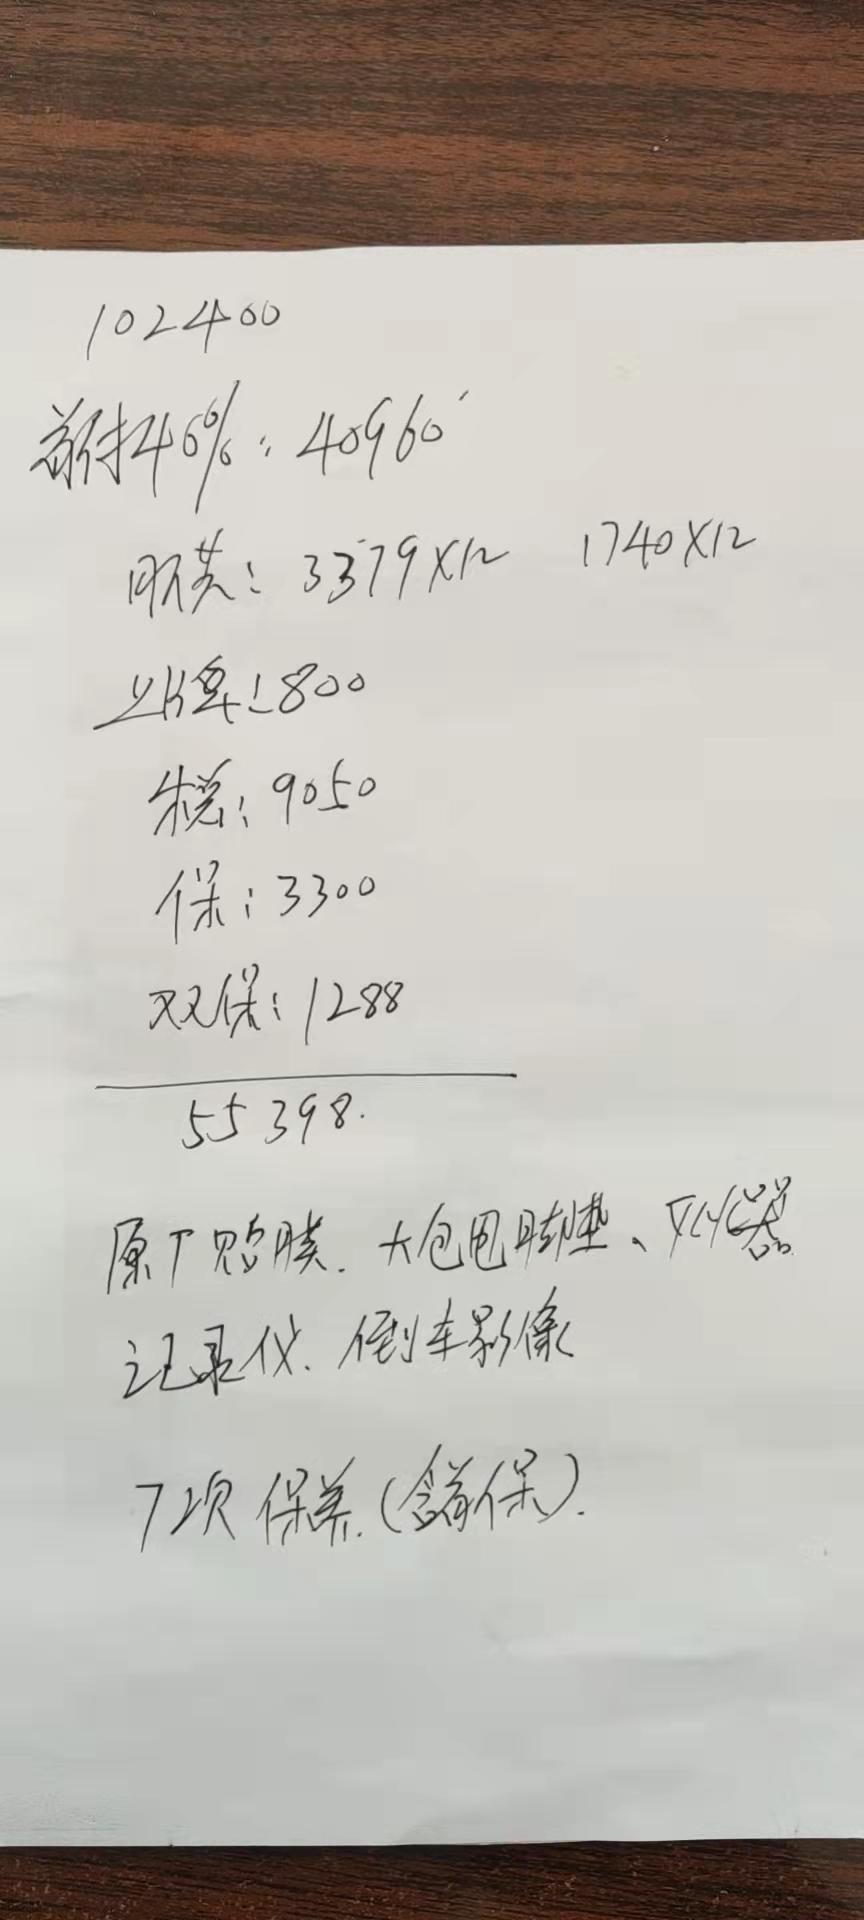 102400
首付40%: 40960
月供: 3379X12 1740X12
上牌: 800
税: 9050
保: 3300
双保: 1288
55398.
原厂贴膜. 大包围脚垫、灭火器
记录仪. 倒车影像
7次保养.(含首保).